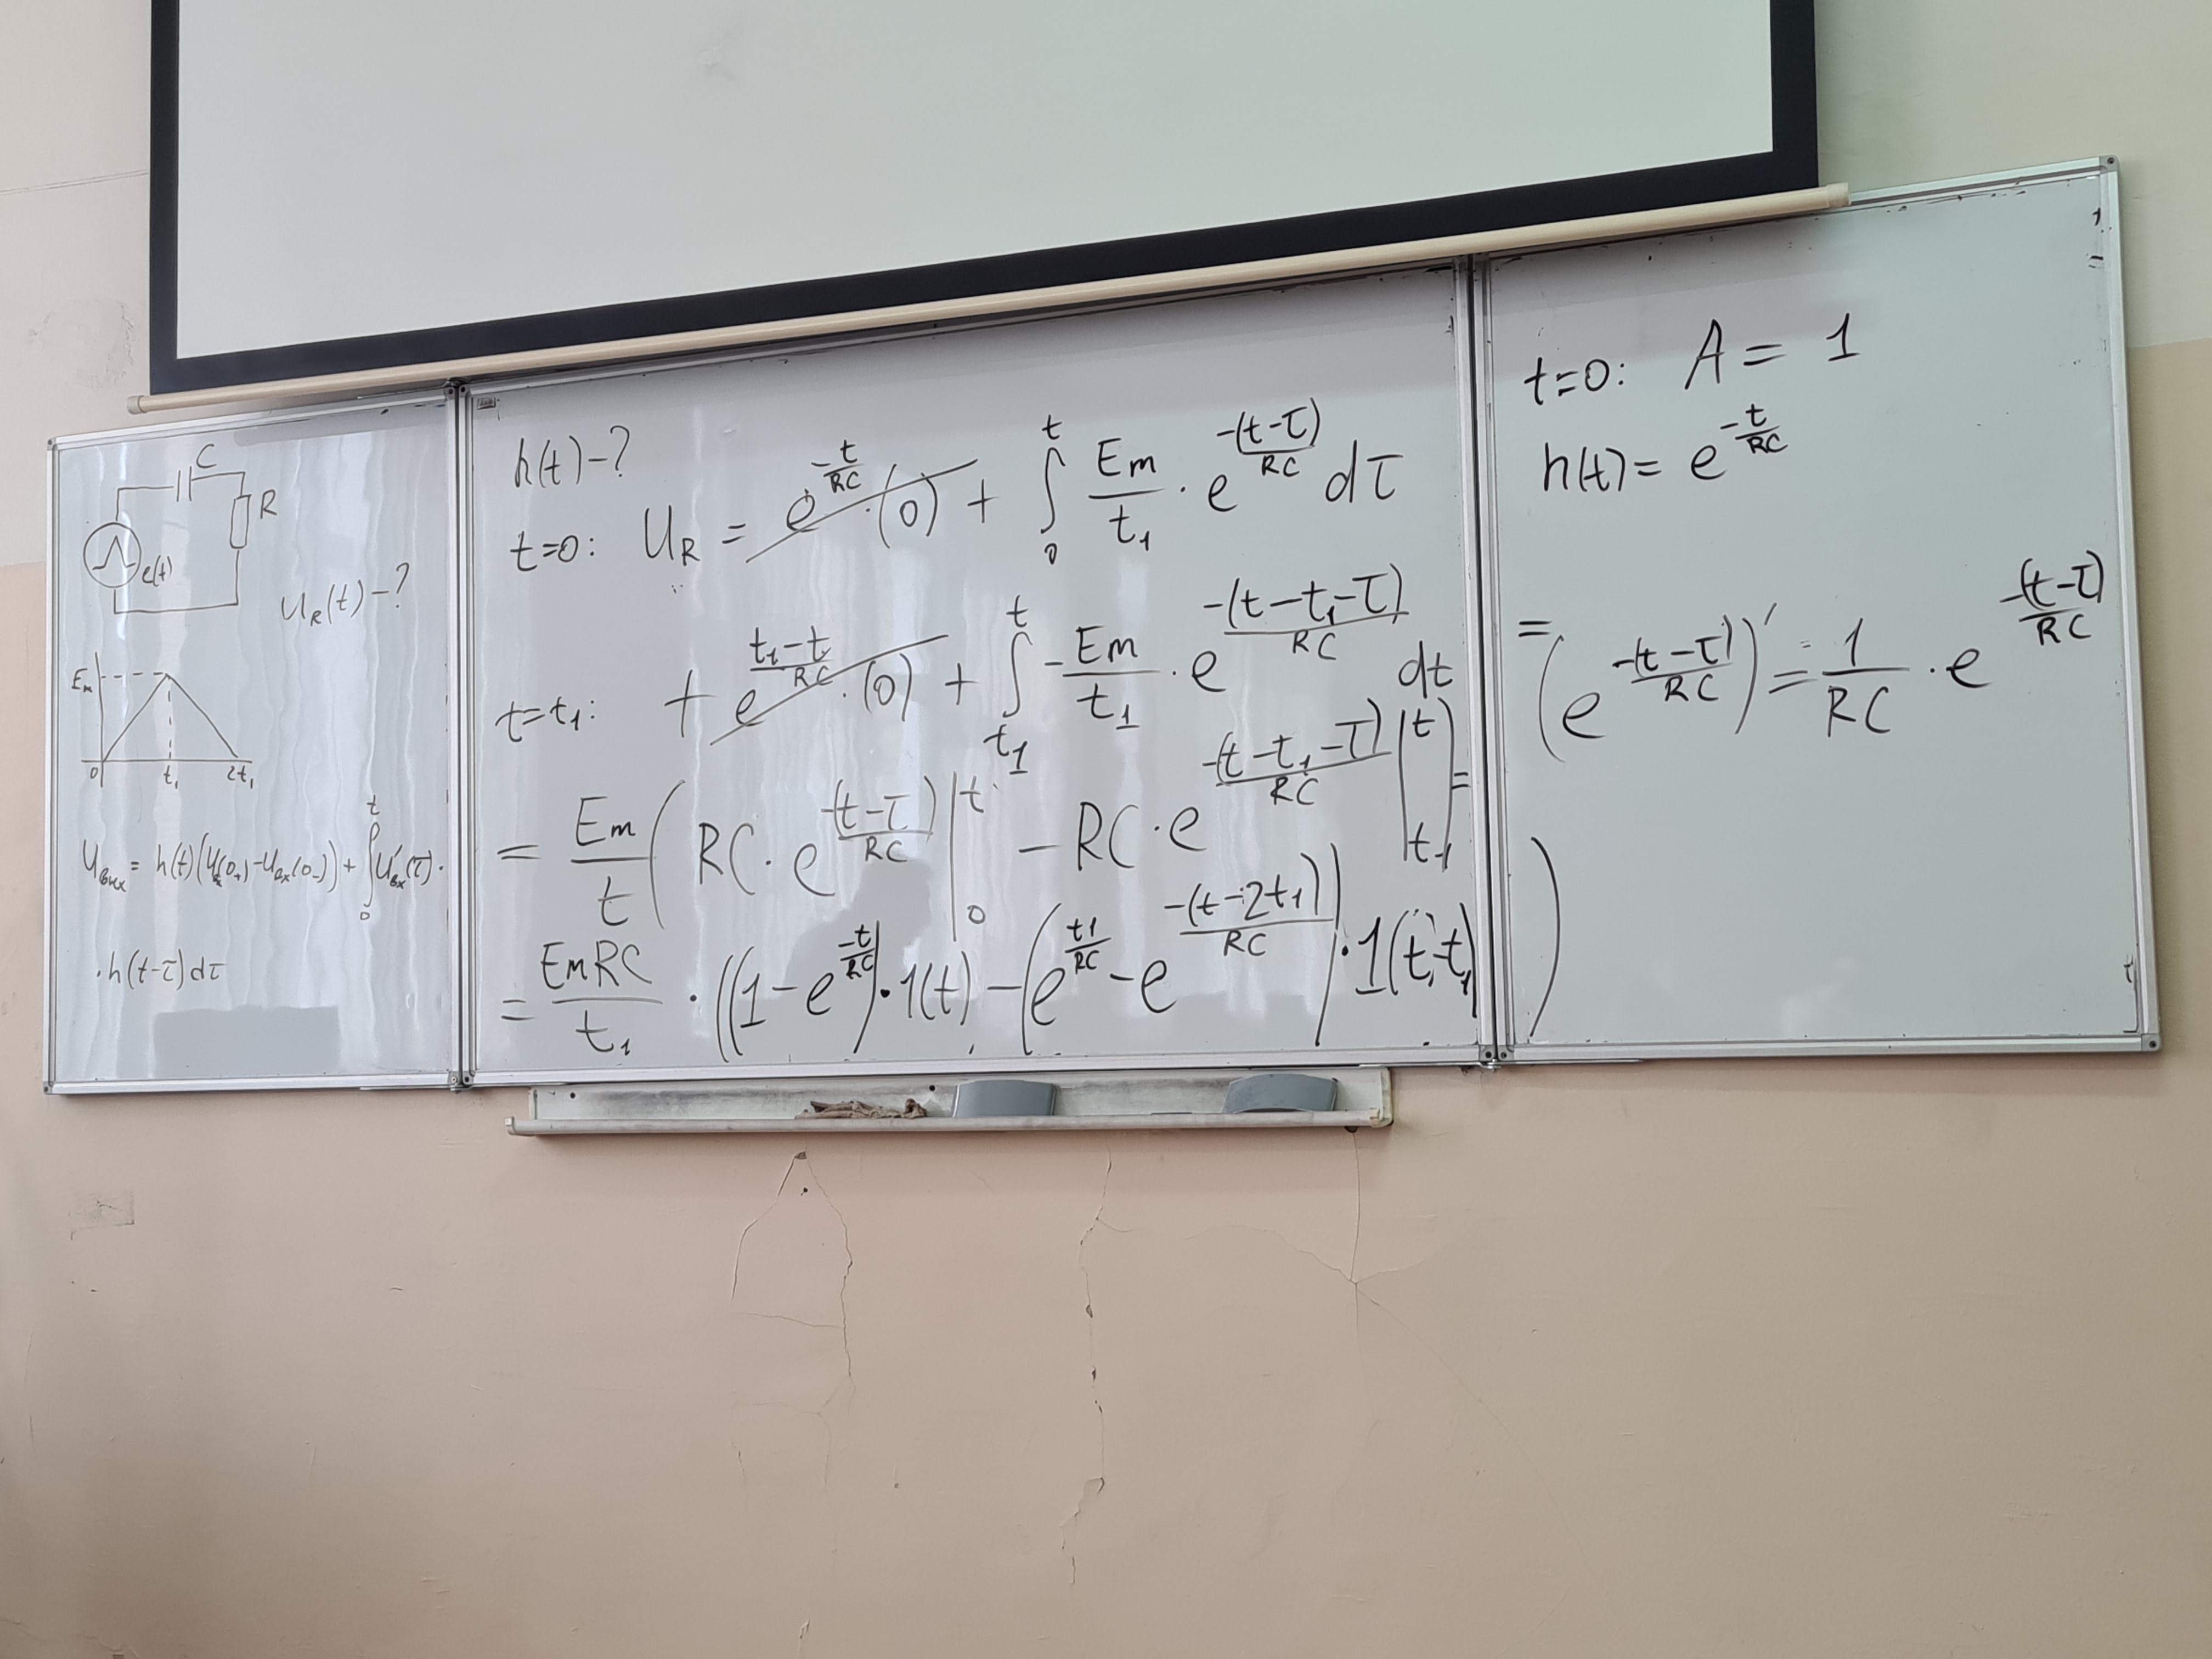 C
R
e(t)
U_R(t) - ?
E_m
0 t_1 2t_1
U_вых = h(t)(U_вх(0_+) - U_вх(0_-)) + ∫_0^t U'_вх(τ) ·
· h(t-τ)dτ
h(t) - ?
t=0: U_R = e^{-t/RC} · (0) + ∫_0^t E_m/t_1 · e^{-(t-τ)/RC} dτ
t=t_1: + e^{(t_1-t)/RC} · (0) + ∫_{t_1}^t -E_m/t_1 · e^{-(t-t_1-τ)/RC} dt
= E_m/t ( RC · e^{-(t-τ)/RC} |_0^t - RC · e^{-(t-t_1-τ)/RC} |_{t_1}^t =
= E_m RC/t_1 · ((1 - e^{-t/RC}) · 1(t) - (e^{t1/RC} - e^{-(t-2t_1)/RC}) · 1(t-t_1) )
t=0: A = 1
h(t) = e^{-t/RC}
= (e^{-(t-τ)/RC})' = 1/RC · e^{-(t-τ)/RC}